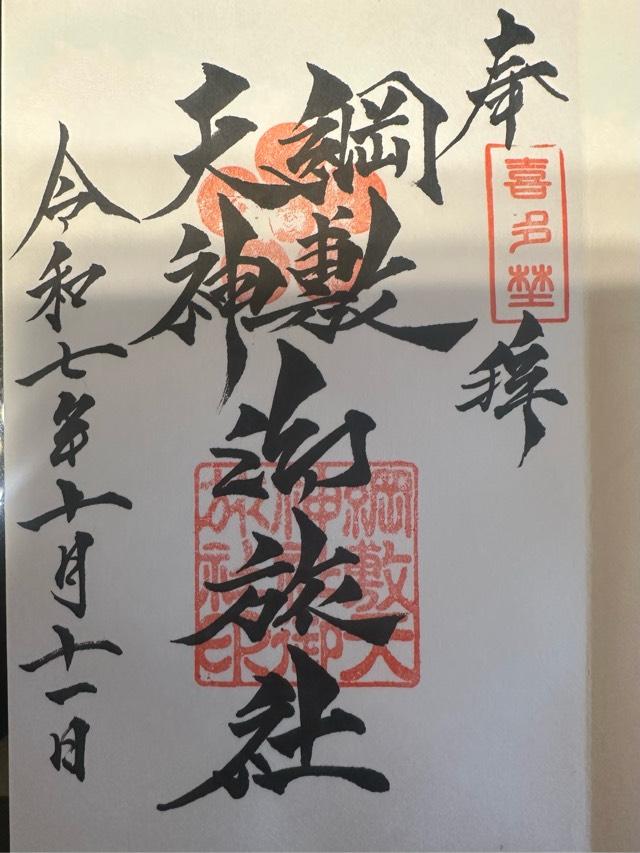 奉拝
喜多埜
綱敷
天神
御旅社
綱敷天
神社御
旅社印
令和七年十月十一日